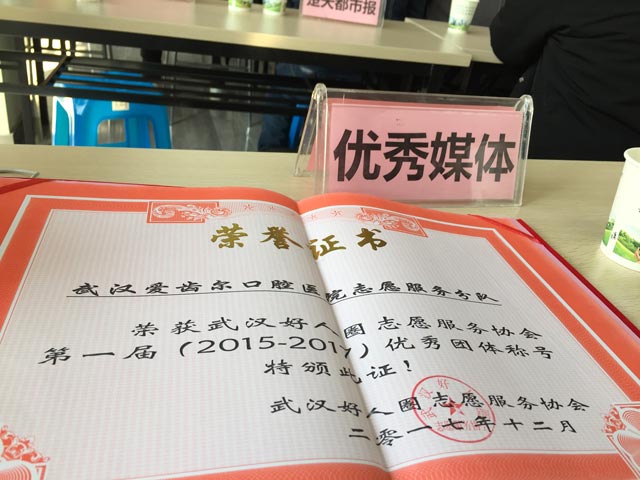 楚天都市报
优秀媒体
荣誉证书
武汉爱齿尔口腔医院志愿服务分队
荣获武汉好人圈志愿服务协会
第一届(2015-2017)优秀团体称号
特颁此证!
武汉好人圈志愿服务协会
二零一七年十二月